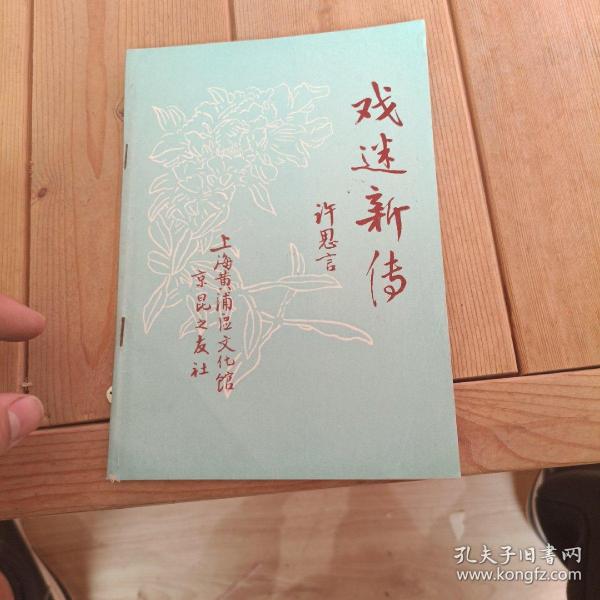 戏迷新传
许思言
上海黄浦区文化馆
京昆之友社
孔夫子旧书网
www.kongfz.com